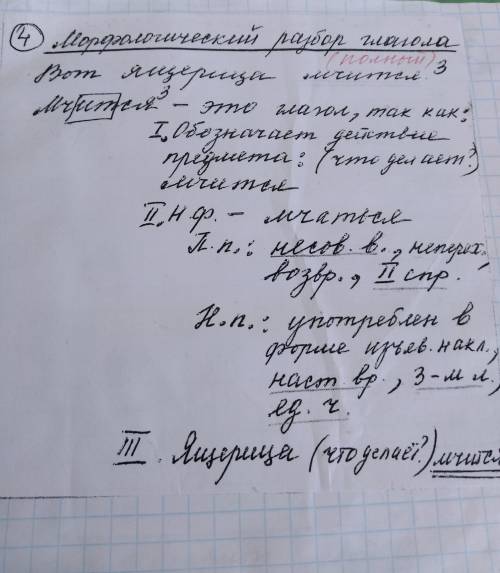 4 Морфологический разбор глагола
(полный)
Вот ящерица мчится 3
Мчится 3 – это глагол, так как:
I. Обозначает действие
предмета: (что делает?)
мчится
II. Н.ф. – мчаться
П.п.: несов. в., неперех.,
возвр., II спр.
Н.п.: употреблен в
форме изъяв. накл.,
наст. вр., 3-м л.,
ед. ч.
III. Ящерица (что делает?) мчится